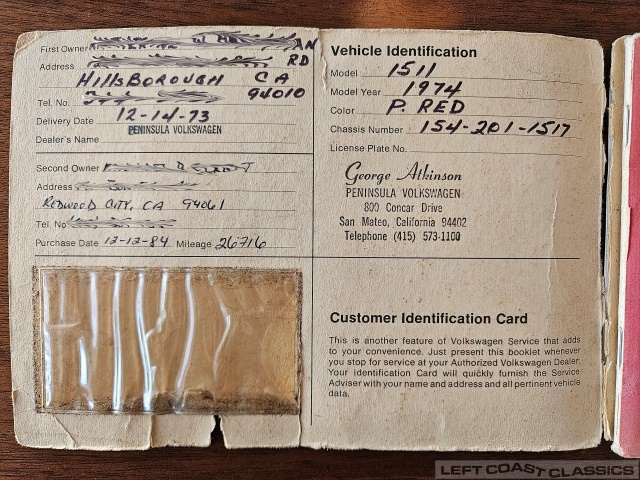 First Owner
Address RD
HILLSBOROUGH CA
Tel. No. 94010
Delivery Date 12-14-73
Dealer's Name PENINSULA VOLKSWAGEN
Second Owner
Address
REDWOOD CITY, CA 94061
Tel. No
Purchase Date 12-12-84 Mileage 26716
Vehicle Identification
Model 1511
Model Year 1974
Color P. RED
Chassis Number 154-201-1517
License Plate No.
George Atkinson
PENINSULA VOLKSWAGEN
800 Concar Drive
San Mateo, California 94402
Telephone (415) 573-1100
Customer Identification Card
This is another feature of Volkswagen Service that adds
to your convenience. Just present this booklet whenever
you stop for service at your Authorized Volkswagen Dealer.
Your identification Card will quickly furnish the Service
Adviser with your name and address and all pertinent vehicle
data.
LEFT COAST CLASSICS